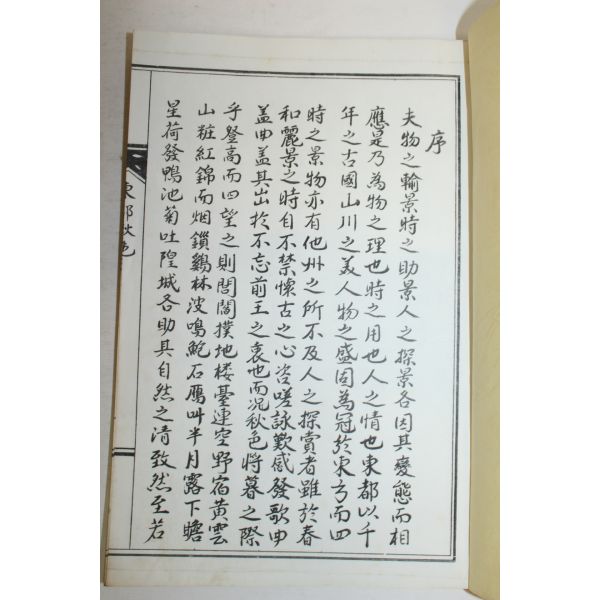 序
夫物之輸景時之助景人之探景各因其變態而相
應是乃為物之理也時之用也人之情也東都以千
年之古國山川之美人物之盛固為冠於東方而四
時之景物亦有他州之所不及人之探賞者雖於春
和麗景之時自不禁懷古之心咨嗟詠歎感發歌曲
盖曲盖其出於不忘前王之衷也而况秋色將暮之際
乎登高而四望之則閭閻撲地楼臺連空野宿黃雲
山粧紅錦而烟鎖鷄林波鳴鮑石鴈叫半月露下瞻
星荷發鴨池菊吐隍城各助其自然之清致然至若
東都秋色